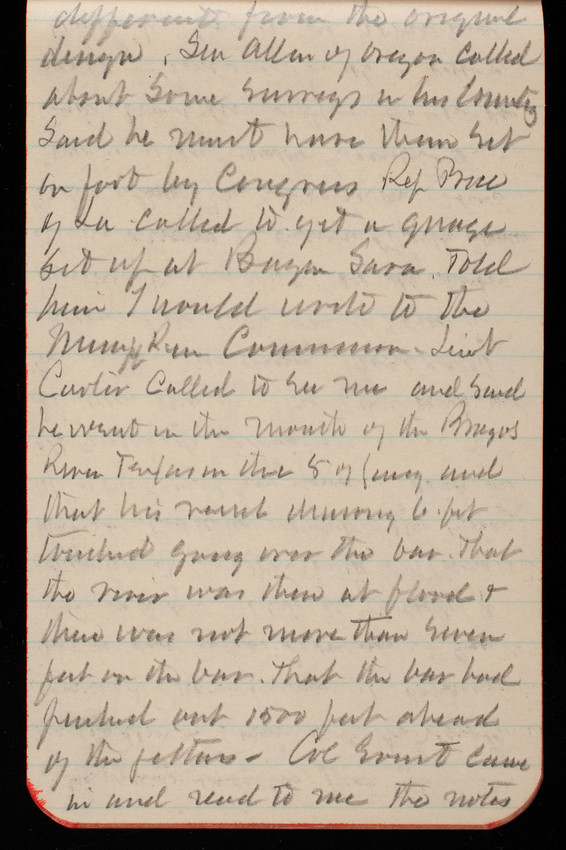 different from the original
design. Gen Allen of Oregon called
about some surveys in his County
Said he must have them set
on foot by Congress Rep Price
of La called to get a guage
set up at Bayou Sara. Told
him I would write to the
Missipp River Commission. Lieut
Curtis Called to see me and said
he went in the mouth of the Brazos
River Texas on the 5 of and
that his vessel drawing 6 feet
touched going over the bar. That
the river was then at flood &
there was not more than seven
feet on the bar. That the bar had
pushed out 1500 feet ahead
of the jetties - Col Grant came
in and read to me the notes